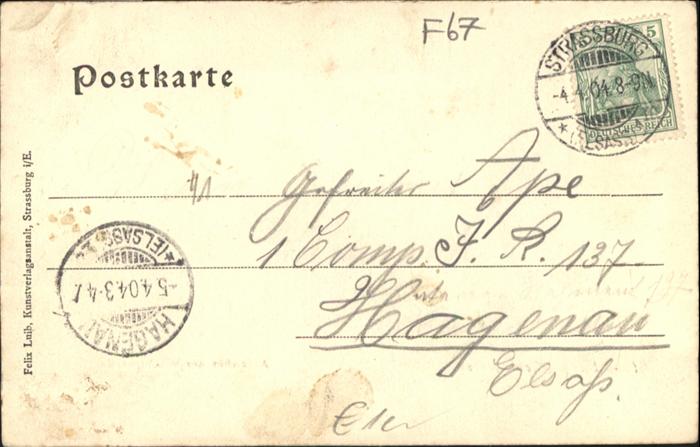 F67
Postkarte
STRASSBURG
-4.4.04.8-9N.
* (ELSASS) 1
5
DEUTSCHES REICH
41
Gefreiter Ape
1 Comp. J. R. 137
Hagenau
Elsaß
HAGENAU
-5.4.04.3-4
* (ELSASS)
Felix Luib, Kunstverlagsanstalt, Strassburg i/E.